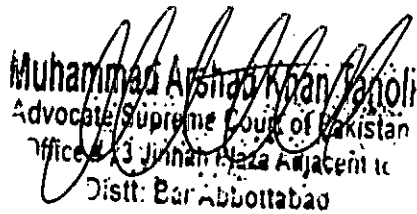 Muhammad Arshad Khan Tanoli
Advocate Supreme Court of Pakistan
Office # 13 Jinnah Plaza Adjacent to
Distt: Bar Abbottabad